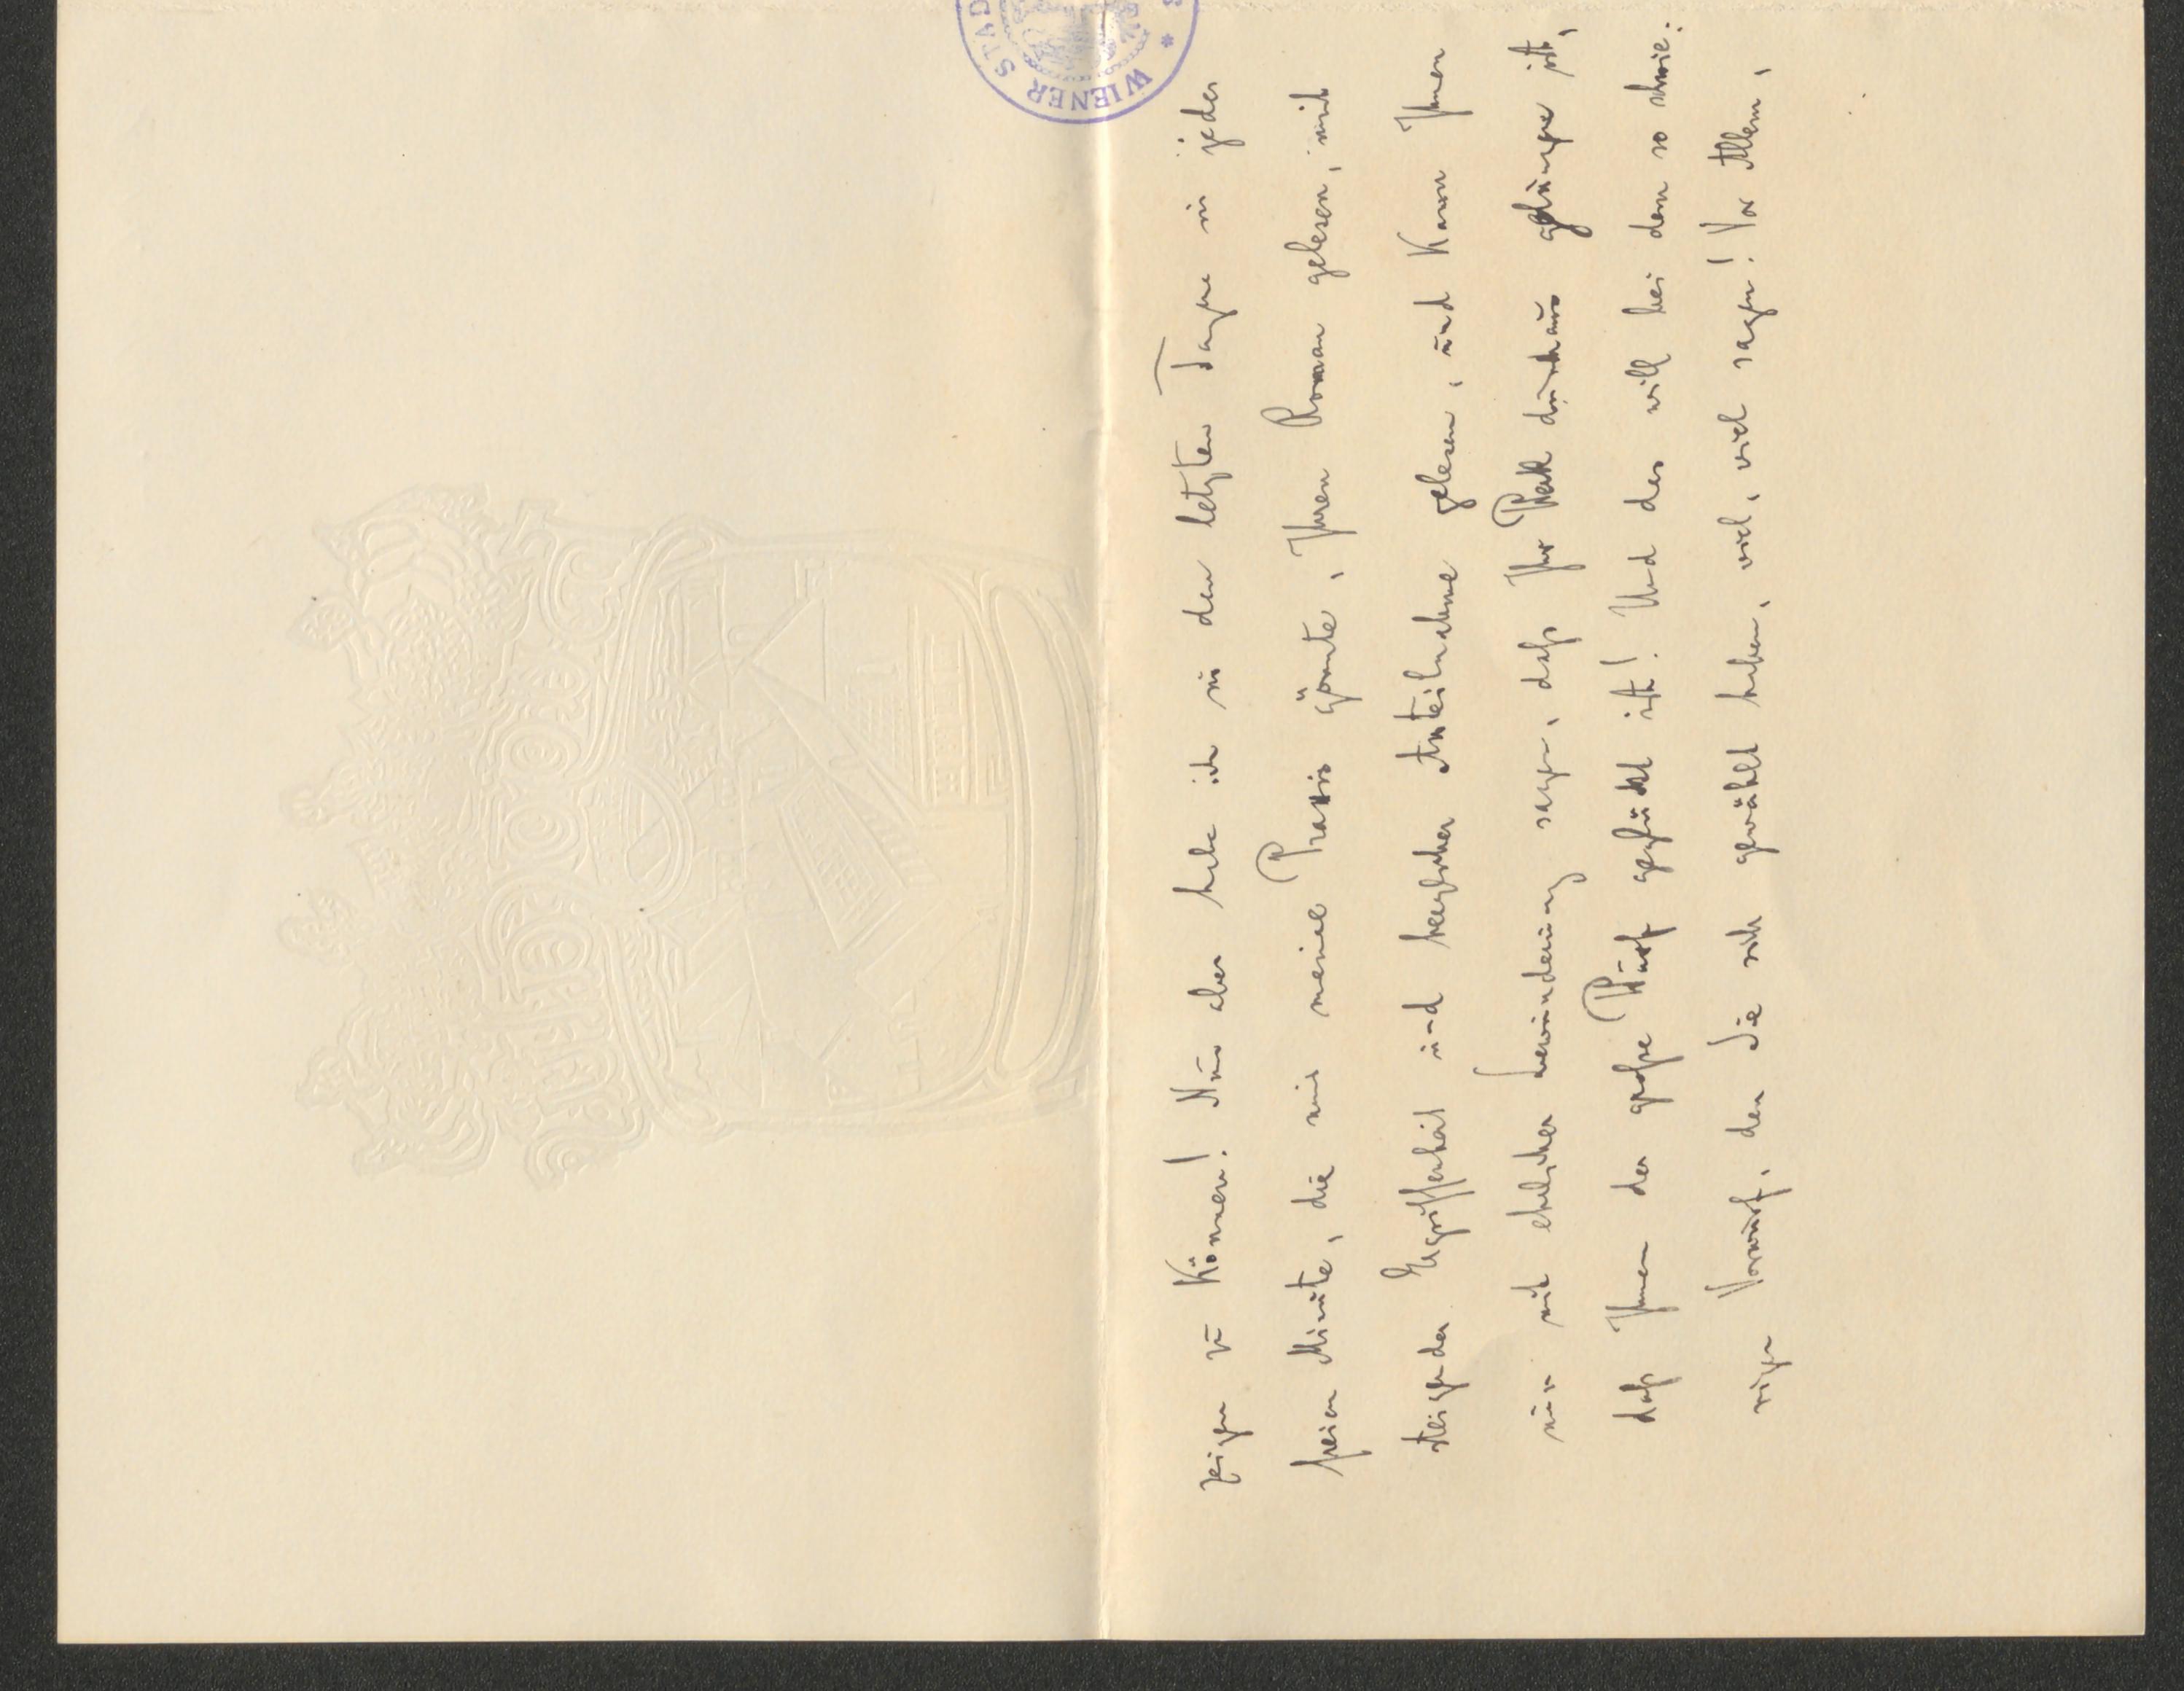 zeigen zu können! Nun aber habe ich in den letzten Tagen in jeder
freien Minute, die mir meine Praxis gönnte, Ihren Roman gelesen, mit
steigender Ergriffenheit und herzlicher Anteilnahme gelesen, und kann Ihnen
nur mit ehrlicher Bewunderung sagen, daß Ihr Werk durchaus gelungen ist,
daß Ihnen der große Wurf geglückt ist! Und das will bei dem so schwie-
rigen Vorwurf, den Sie sich gewählt haben, viel, viel, viel sagen! Vor Allem,
WIENER STAD